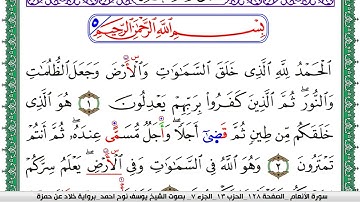 بِسْمِ اللَّهِ الرَّحْمَٰنِ الرَّحِيمِ
الْحَمْدُ لِلَّهِ الَّذِي خَلَقَ السَّمَٰوَٰتِ وَالْأَرْضَ وَجَعَلَ الظُّلُمَٰتِ
وَالنُّورَ ۖ ثُمَّ الَّذِينَ كَفَرُوا بِرَبِّهِمْ يَعْدِلُونَ ١ هُوَ الَّذِي
خَلَقَكُم مِّن طِينٍ ثُمَّ قَضَىٰ أَجَلًا ۖ وَأَجَلٌ مُّسَمًّى عِندَهُ ۖ ثُمَّ أَنتُمْ
تَمْتَرُونَ ٢ وَهُوَ اللَّهُ فِي السَّمَٰوَٰتِ وَفِي الْأَرْضِ ۖ يَعْلَمُ سِرَّكُمْ
سورة الأنعام _ الصفحة ١٢٨ _ الحزب ١٣ _ الجزء ٧ _ بصوت الشيخ يوسف نوح احمد _ برواية خلاد عن حمزة